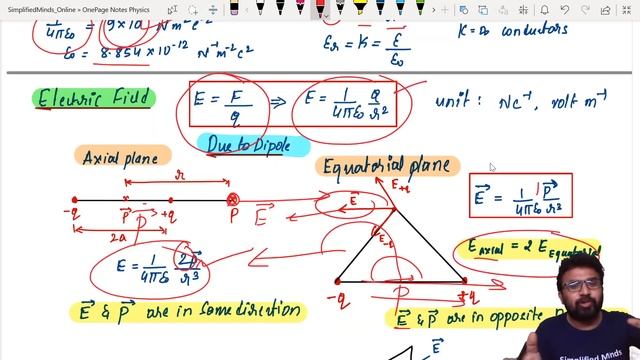 SimplifiedMinds_Online » OnePage Notes Physics
1/4πε₀ = 9×10 N m² c⁻²
ε₀ = 8.854×10⁻¹² N⁻¹m⁻²c²
εr = K = ε/ε₀
K=∞ conductors
Electric Field
E = F/q ⇒ E = 1/4πε₀ q/r²
unit: Nc⁻¹, volt m⁻¹
Due to Dipole
Axial plane
Equatorial plane
r
-q P⃗ +q P E⃗
P
2a
E = 1/4πε₀ 2P⃗/r³
E⃗ & P⃗ are in same direction
E+q
E⃗
E-q
-q P +q
E⃗ = 1/4πε₀ P⃗
E Axial = 2 E Equatorial
E⃗ & P⃗ are in opposite
E⃗
Simplified Minds